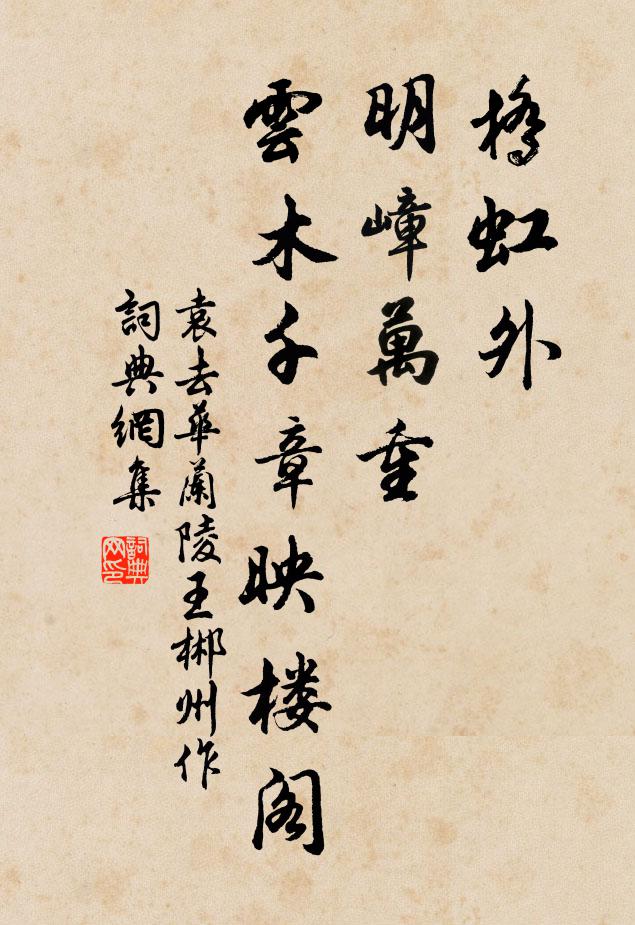 橋虹外
明嶂萬重
雲木千章映楼阁
袁去華蘭陵王郴州作
詞典網集
詞典
网印